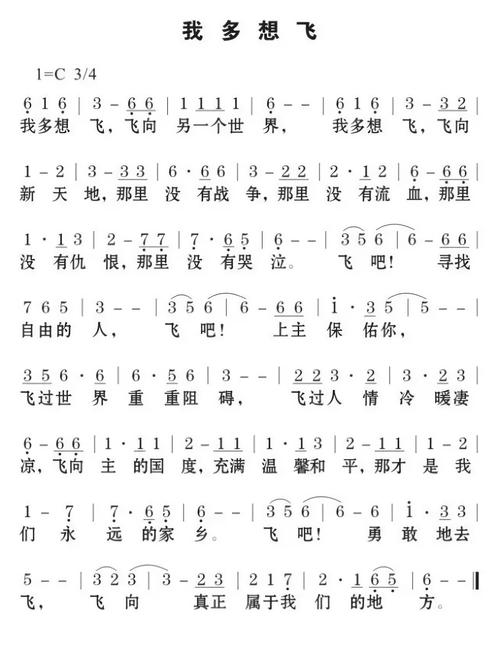 我多想飞
1=C 3/4
6 1 6 | 3 - 6 6 | 1 1 1 1 | 6 - - | 6 1 6 | 3 - 3 2 |
我多想 飞,飞向 另一个世 界, 我多想 飞,飞向
1 - 2 | 3 - 3 3 | 6 · 6 6 | 3 - 2 2 | 2 · 1 2 | 6 - 6 6 |
新 天 地,那里 没 有战 争,那里 没 有流 血,那里
1 · 1 3 | 2 - 7 7 | 7 · 6 5 | 6 - - | 3 5 6 | 6 - 6 6 |
没 有仇 恨,那里 没 有哭 泣。 飞 吧! 寻找
7 6 5 | 3 - - | 3 5 6 | 6 - 6 6 | 1 · 3 | 2 3 5 |
自由的 人, 飞 吧! 上主 保 佑你,
3 5 6 · 6 | 6 · 5 6 | 3 - - | 2 3 2 1 | 3 · 2 3 |
飞过世 界 重 重阻 碍, 飞过人 情 冷 暖凄
6 - 6 6 | 1 · 1 1 | 2 - 1 1 | 2 · 1 2 | 3 - 2 2 | 2 · 1 1 |
凉,飞向 主 的国 度,充满 温 馨和 平,那才 是 我
1 - 7 | 7 · 6 5 | 6 - - | 3 5 6 | 6 - 6 | 1 · 3 3 |
们 永 远 的家 乡。 飞 吧! 勇 敢 地去
5 - - | 3 2 3 | 3 - 2 3 | 2 1 7 | 2 · 1 6 5 | 6 - - ‖
飞, 飞 向 真正 属于我 们 的地 方。